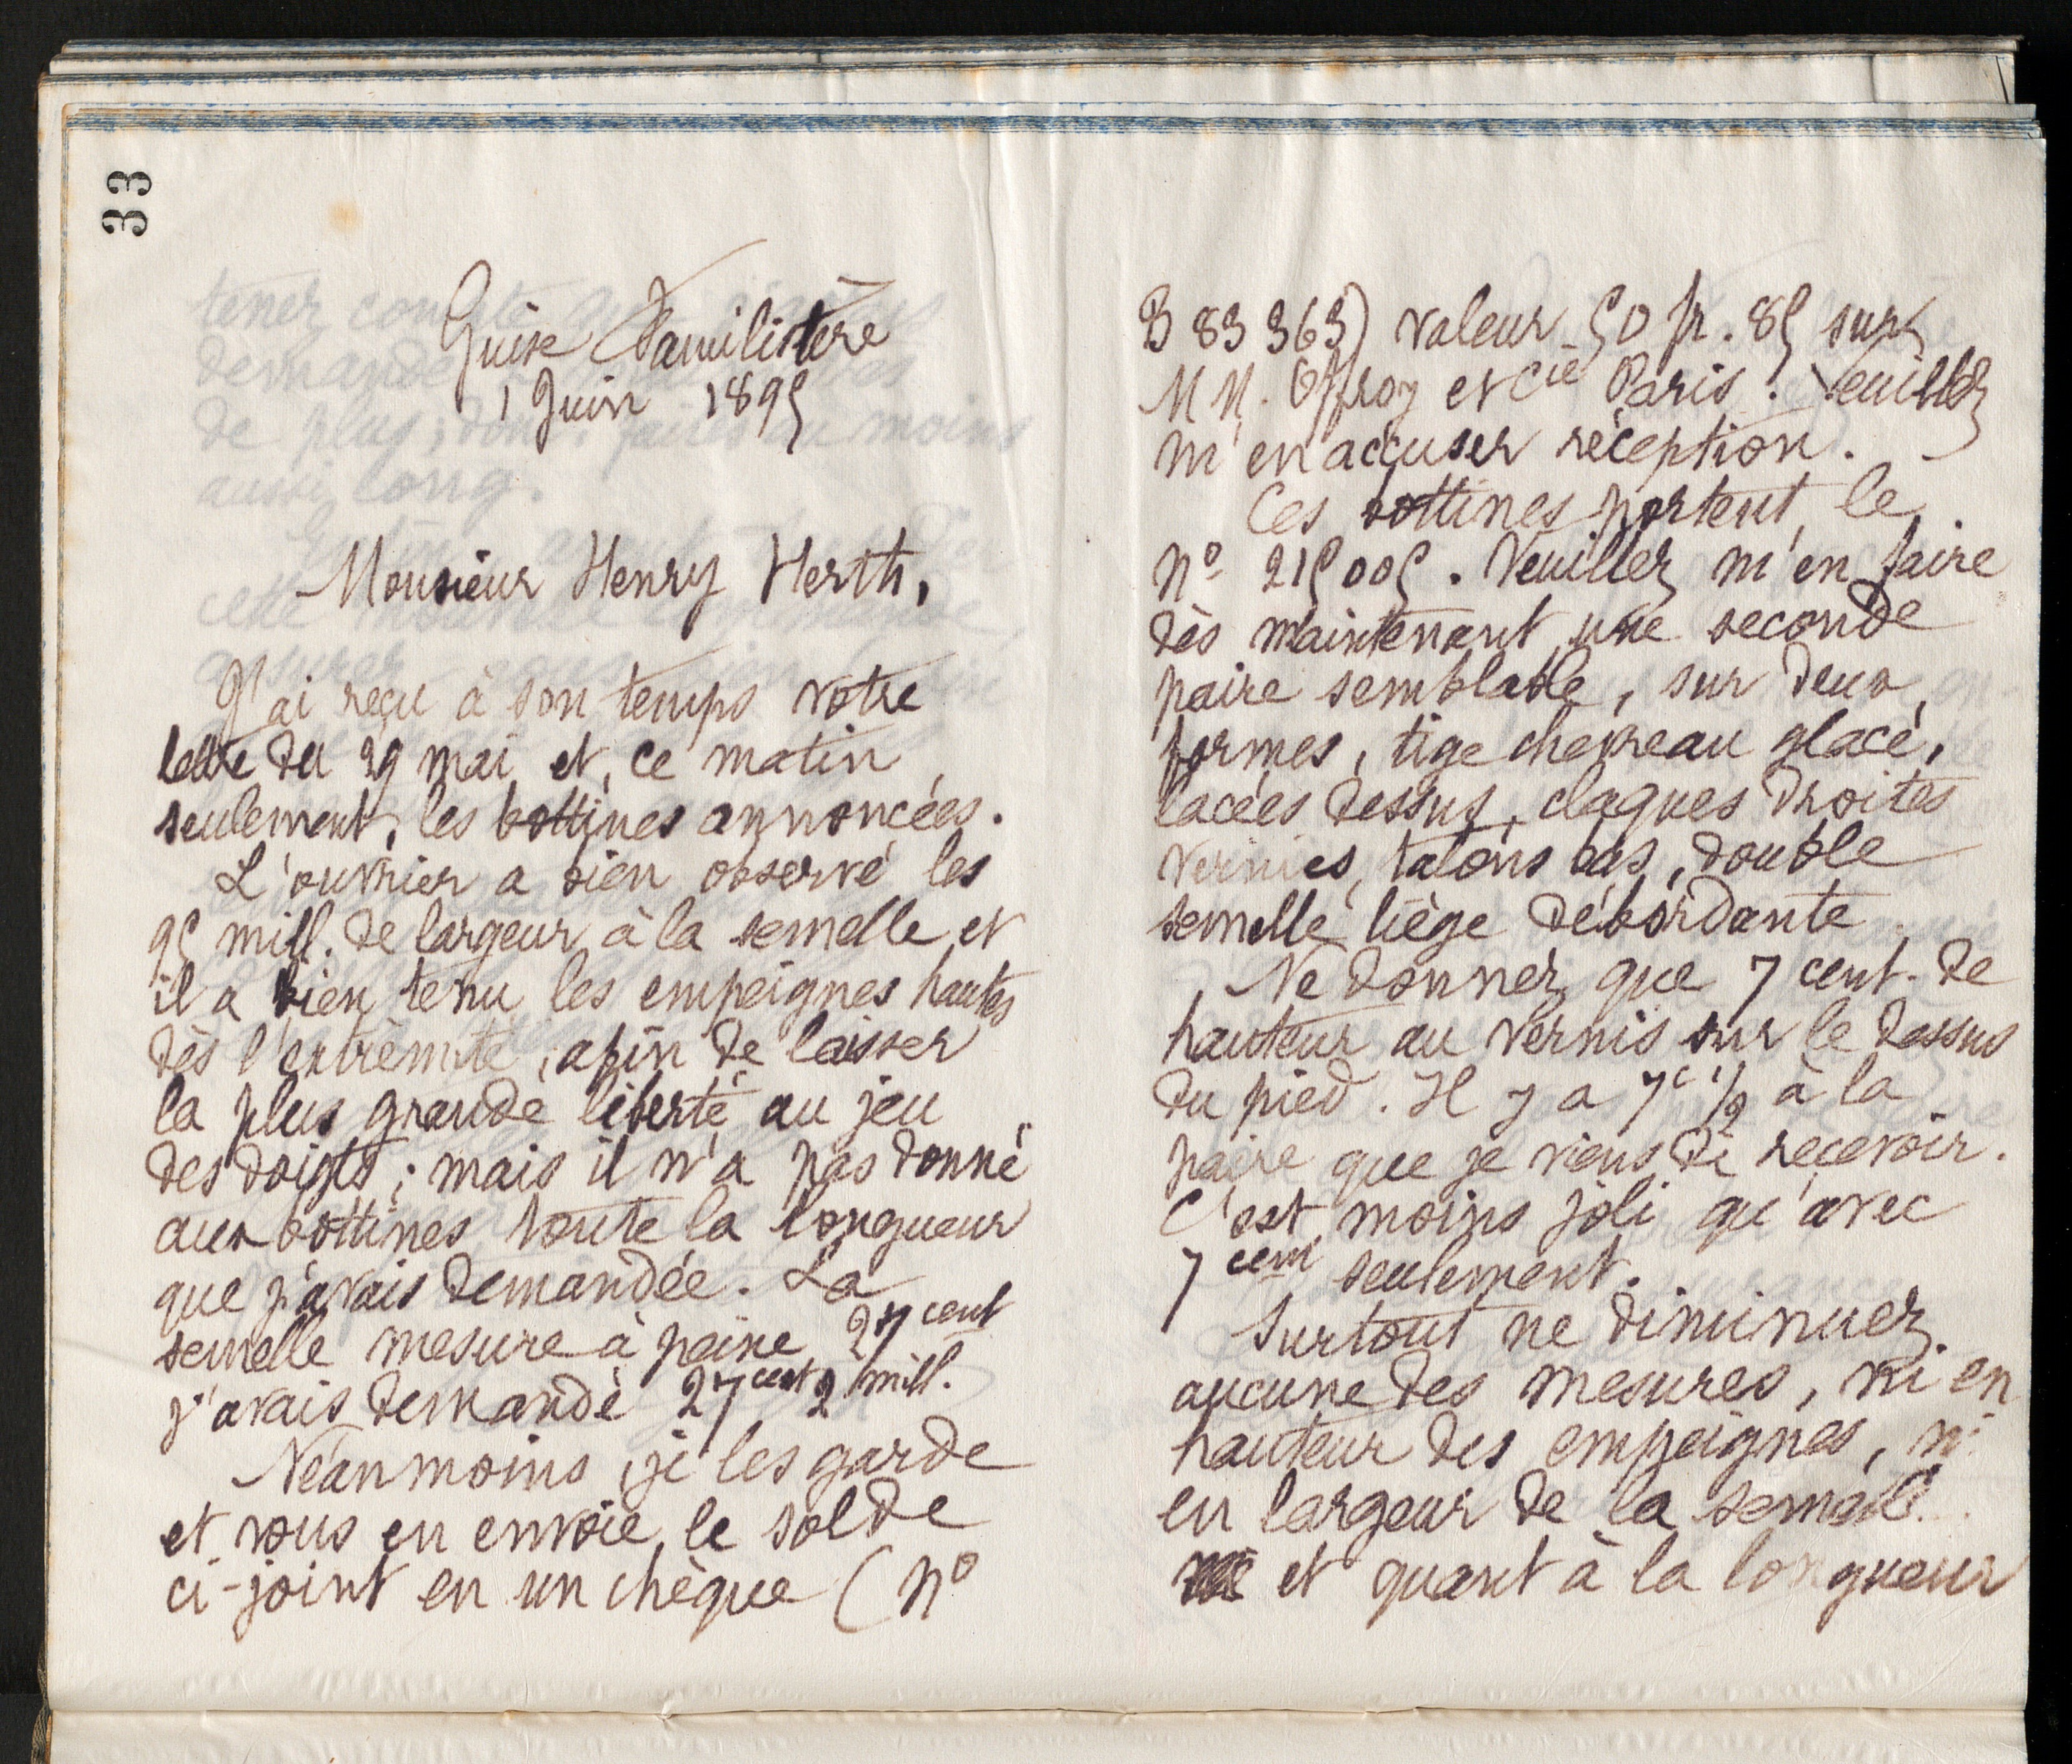 33
Guise Familistère
1 Juin 1895
Monsieur Henry Herth,
J'ai reçu à son temps votre
lettre du 29 mai et, ce matin
seulement, les bottines annoncées.
L'ouvrier a bien observé les
95 mill. de largeur à la semelle et
il a bien tenu les empeignes hautes
dès l'extrèmité, afin de laisser
la plus grande liberté au jeu
des doigts; mais il n'a pas donné
aux bottines toute la longueur
que j'avais demandée. La
semelle mesure à peine 27 cent
j'avais demandé 27 cent 2 mill.
Néanmoins, je les garde
et vous en envoie le solde
ci-joint en un chèque (No
B 83 363) valeur 50 fr. 85 sur
MM. Offroy et Cie Paris. Veuillez
m'en accuser réception.
Ces bottines portent le
No 215005. Veuillez m'en faire
dès maintenant une seconde
paire semblable, sur deux
formes, tige chevreau glacé,
lacées dessus, claques droites
vernies, talons bas, double
semelle liège débordante
Ne donnez que 7 cent. de
hauteur au vernis sur le dessus
du pied. Il y a 7c 1/2 à la
paire que je viens de recevoir.
C'est moins joli qu'avec
7 cent seulement.
Surtout ne diminuez
aucune des mesures, ni en
hauteur des empeignes, ni
en largeur de la semelle
et quant à la longueur